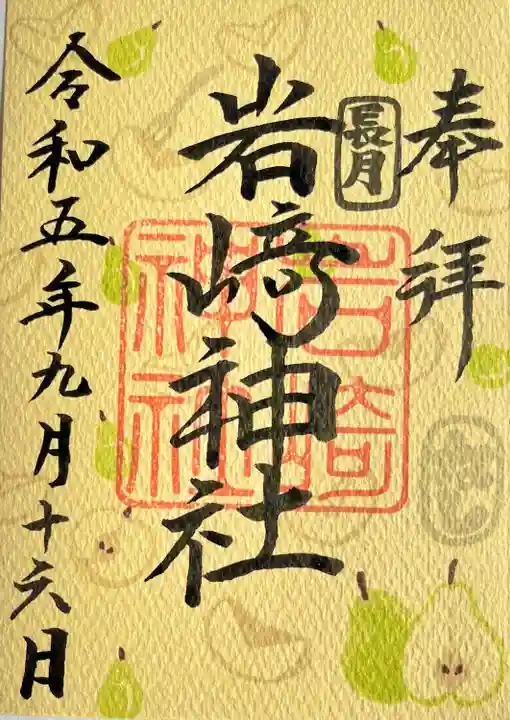 奉拝
長月
岩崎神社
岩崎神社
令和五年九月十六日